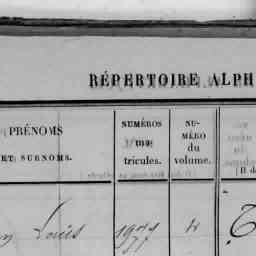 RÉPERTOIRE ALPH
PRÉNOMS
ET SURNOMS.
NUMÉROS
ma-
tricules.
NU-
MÉRO
du
volume.
Louis 1977 4